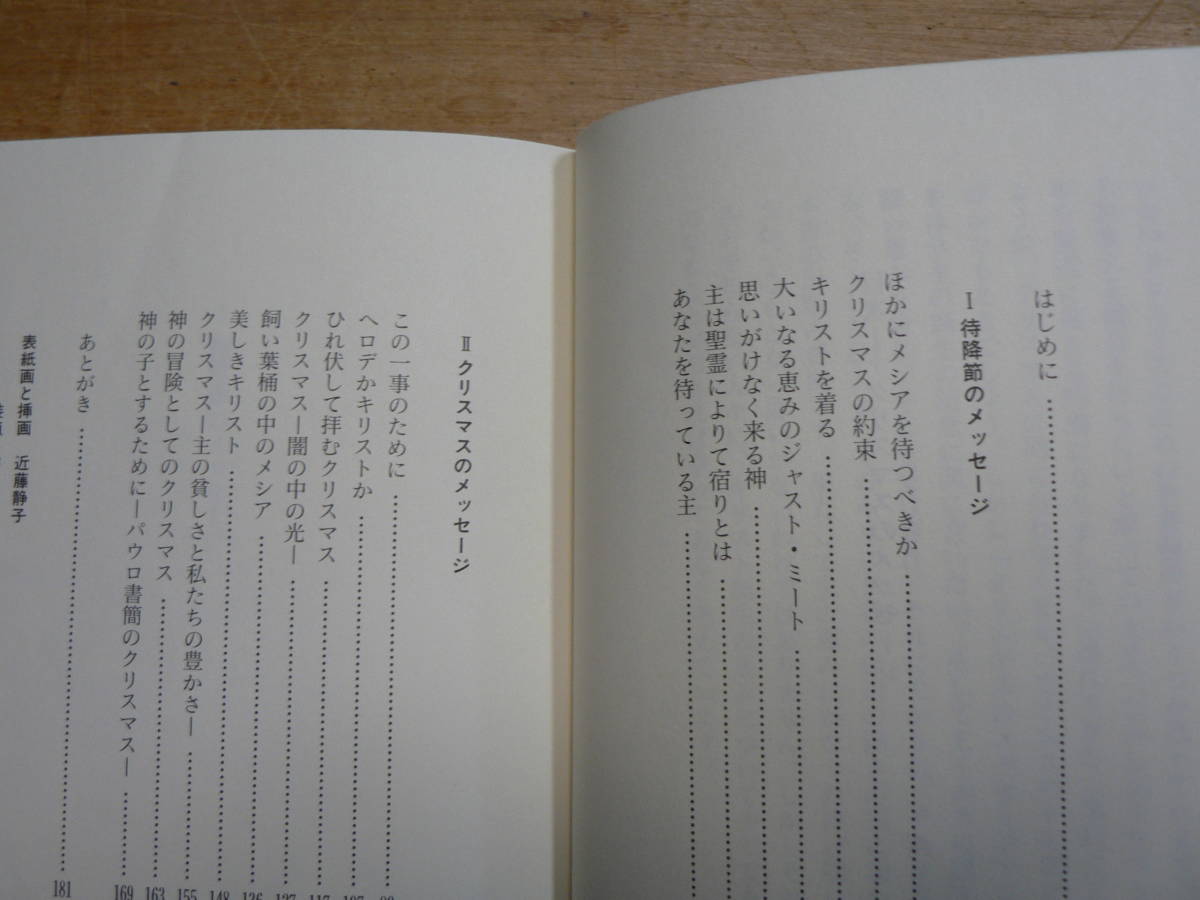 はじめに
Ⅰ 待降節のメッセージ
ほかにメシアを待つべきか
クリスマスの約束
キリストを着る
大いなる恵みのジャスト・ミート
思いがけなく来る神
主は聖霊によりて宿りとは
あなたを待っている主
Ⅱ クリスマスのメッセージ
この一事のために
ヘロデかキリストか
ひれ伏して拝むクリスマス
クリスマス―闇の中の光―
飼い葉桶の中のメシア
美しきキリスト 148
クリスマス―主の貧しさと私たちの豊かさ― 155
神の冒険としてのクリスマス 163
神の子とするために―パウロ書簡のクリスマス― 169
あとがき 181
表紙画と挿画 近藤静子